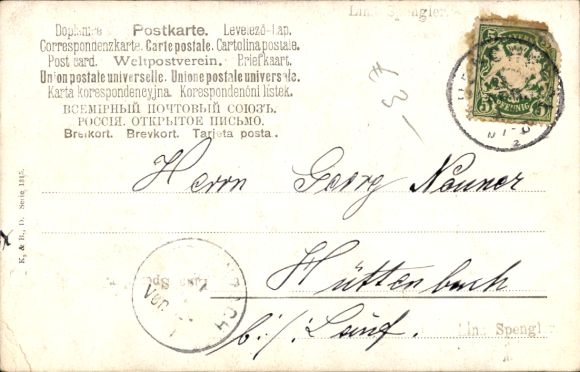 Lina Spengler
Postkarte. Levelező-Lap.
Correspondenzkarte. Carte postale. Cartolina postale.
Post card. Weltpostverein. Briefkaart.
Union postale universelle. Unione postale universale.
Karta korespondencyjna. Korespondenční lístek.
ВСЕМІРНЫЙ ПОЧТОВЫЙ СОЮЗЪ.
РОССІЯ. ОТКРЫТОЕ ПИСЬМО.
Brefkort. Brevkort. Tarjeta postal.
5 BAYERN 5
5 PFENNIG 5
Herrn Georg Nonner
Hüttenbach
b:/: Lauf.
Lina Spengler
K. & B., D. Serie 1315.